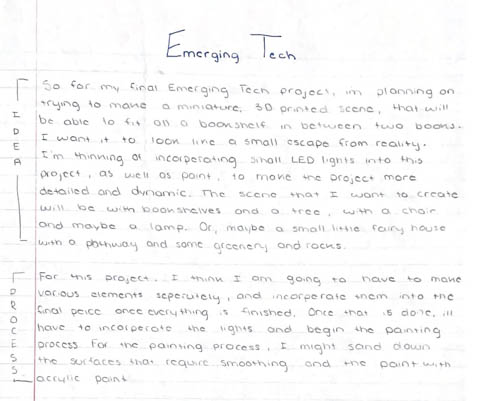 Emerging Tech
IDEA
So for my final Emerging Tech project, im planning on
trying to make a miniature, 3D printed scene, that will
be able to fit on a bookshelf in between two books.
I want it to look like a small escape from reality.
I'm thinking of incorperating small LED lights into this
project, as well as paint, to make the project more
detailed and dynamic. The scene that I want to create
will be with bookshelves and a tree, with a chair
and maybe a lamp. Or, maybe a small little fairy house
with a pathway and some greenery and rocks.
PROCESS
For this project, I think I am going to have to make
various elements seperutely, and incorperate them into the
final peice once everything is finished. Once that is done, ill
have to incorperate the lights and begin the painting
process. For the painting process, I might sand down
the surfaces that require smoothing and the paint with
acrylic paint